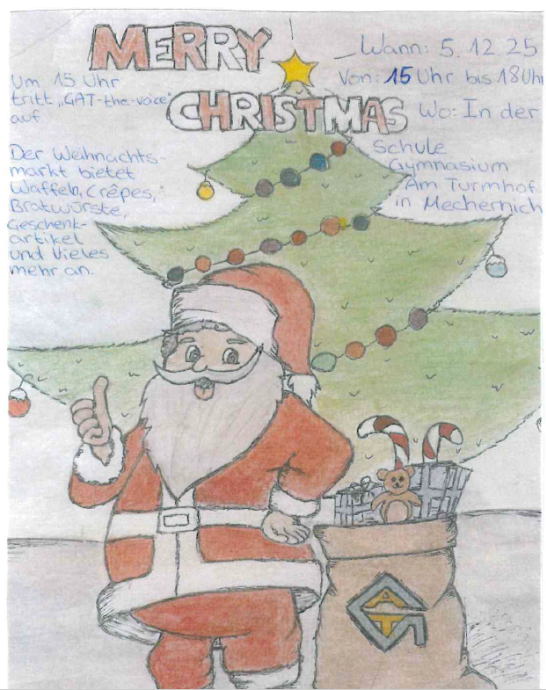 MERRY
CHRISTMAS
Um 15 Uhr
tritt „GAT-the-voice"
auf
Der Weihnachts-
markt bietet
Waffeln, Crêpes,
Bratwürste,
Geschenk-
artikel
und Vieles
mehr an.
Wann: 5.12.25
Von: 15 Uhr bis 18 Uhr
Wo: In der
Schule
Gymnasium
Am Turmhof
in Mechernich
GAT